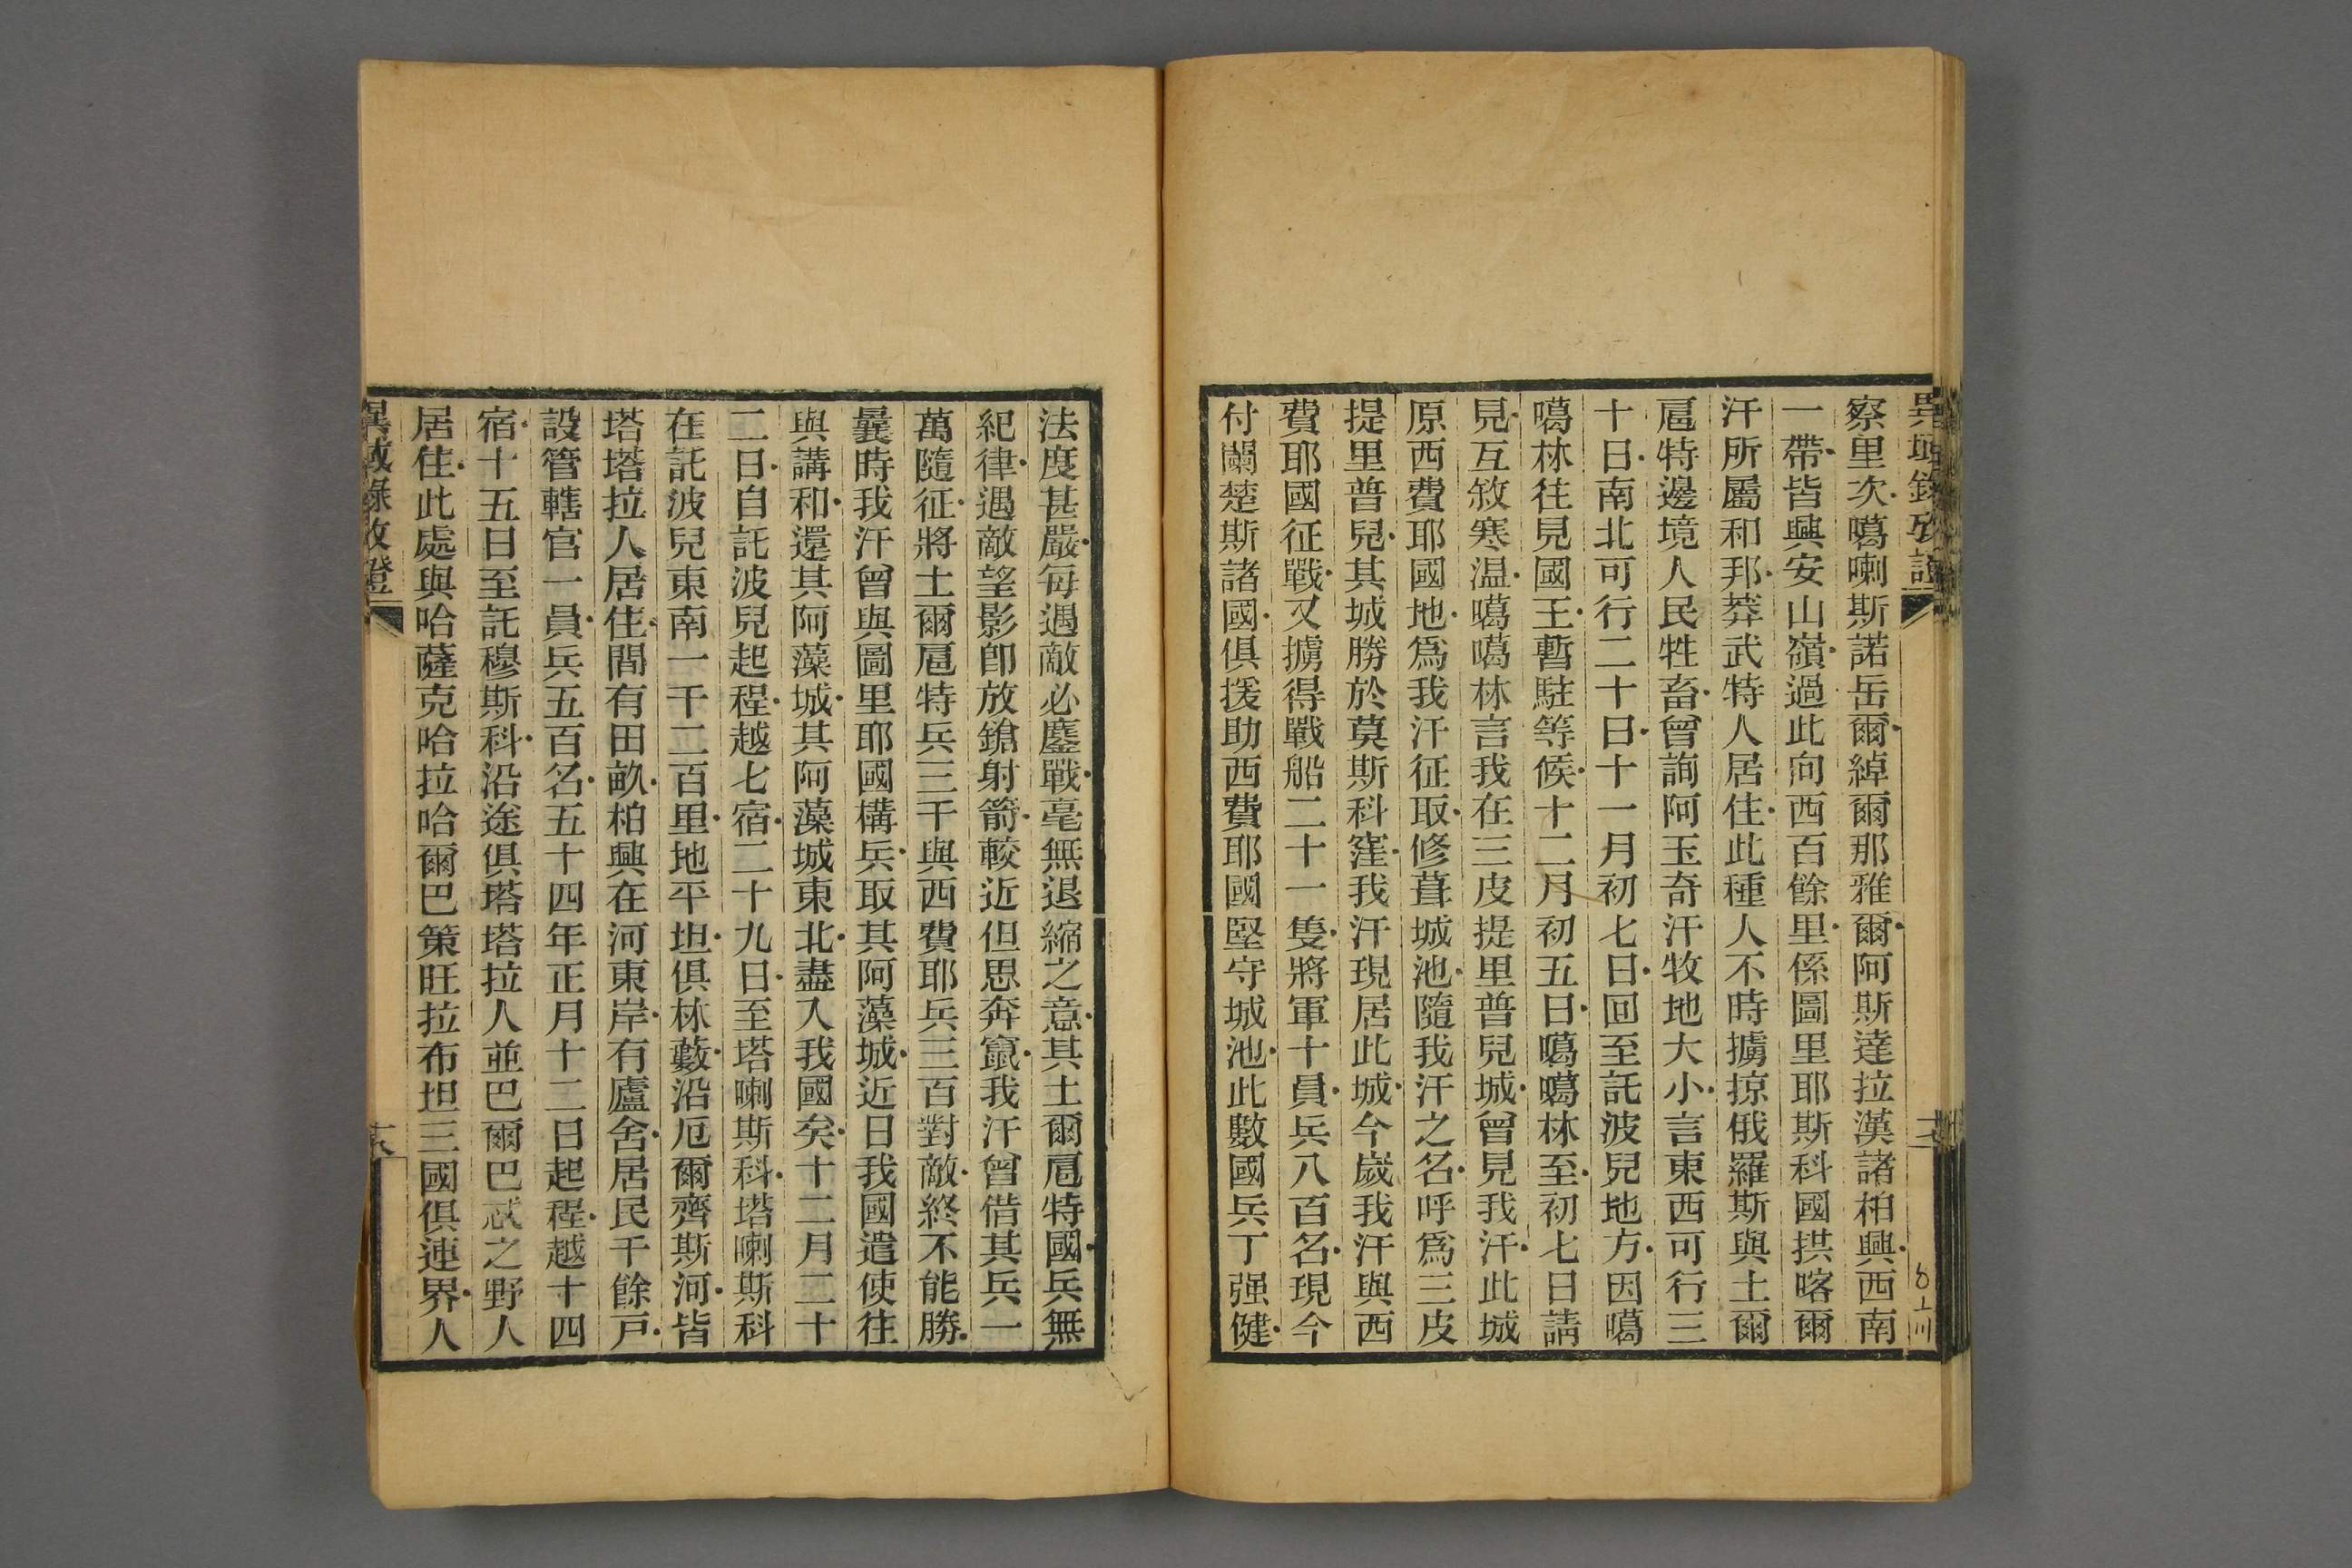 異域錄攷證
察里次噶喇斯諾岳爾綽爾那雅爾阿斯達拉漢諸柏興西南
一帶皆興安山嶺過此向西百餘里係圖里耶斯科國拱喀爾
汗所屬和邦莽武特人居住此種人不時擄掠俄羅斯與土爾
扈特邊境人民牲畜曾詢阿玉奇汗牧地大小言東西可行三
十日南北可行二十日十一月初七日回至託波兒地方因噶
噶林往見國王暫駐等候十二月初五日噶噶林至初七日請
見互敘寒温噶噶林言我在三皮提里普兒城曾見我汗此城
原西費耶國地爲我汗征取修葺城池隨我汗之名呼爲三皮
提里普兒其城勝於莫斯科窪我汗現居此城今歲我汗與西
費耶國征戰又擄得戰船二十一隻將軍十員兵八百名現今
付闌楚斯諸國俱援助西費耶國堅守城池此數國兵丁强健
法度甚嚴每遇敵必鏖戰毫無退縮之意其土爾扈特國兵無
紀律遇敵望影卽放鎗射箭較近但思奔竄我汗曾借其兵一
萬隨征將土爾扈特兵三千與西費耶兵三百對敵終不能勝
曩時我汗曾與圖里耶國構兵取其阿藻城近日我國遣使往
與講和還其阿藻城其阿藻城東北盡入我國矣十二月二十
二日自託波兒起程越七宿二十九日至塔喇斯科塔喇斯科
在託波兒東南一千二百里地平坦俱林藪沿厄爾齊斯河皆
塔塔拉人居住間有田畝柏興在河東岸有廬舍居民千餘戸
設管轄官一員兵五百名五十四年正月十二日起程越十四
宿十五日至託穆斯科沿途俱塔塔拉人並巴爾巴忒之野人
居住此處與哈薩克哈拉哈爾巴策旺拉布坦三國俱連界人
異域錄攷證
十八